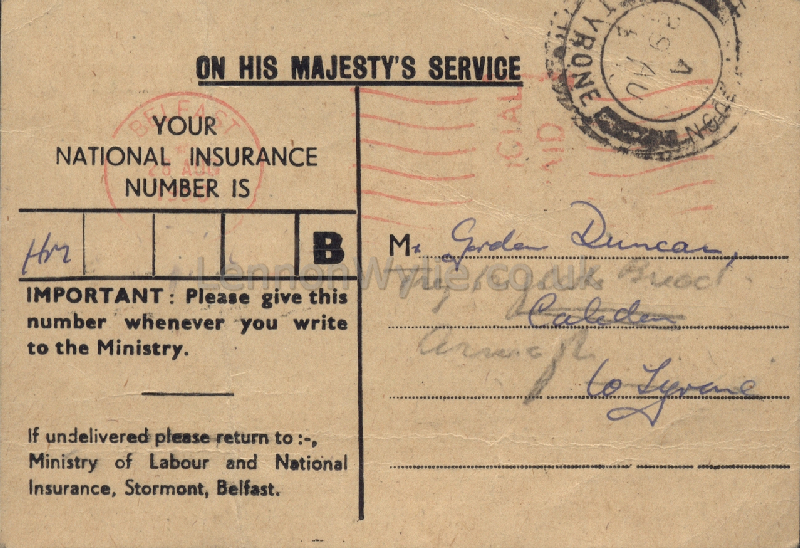 ON HIS MAJESTY'S SERVICE
BELFAST
28 AUG
TYRONE
A
29 AU
OFFICIAL
PAID
YOUR
NATIONAL INSURANCE
NUMBER IS
HM
B
IMPORTANT : Please give this
number whenever you write
to the Ministry.
If undelivered please return to :-,
Ministry of Labour and National
Insurance, Stormont, Belfast.
Mr Gordon Duncan,
Caledon
Armagh
Co Tyrone
LennonWylie.co.uk